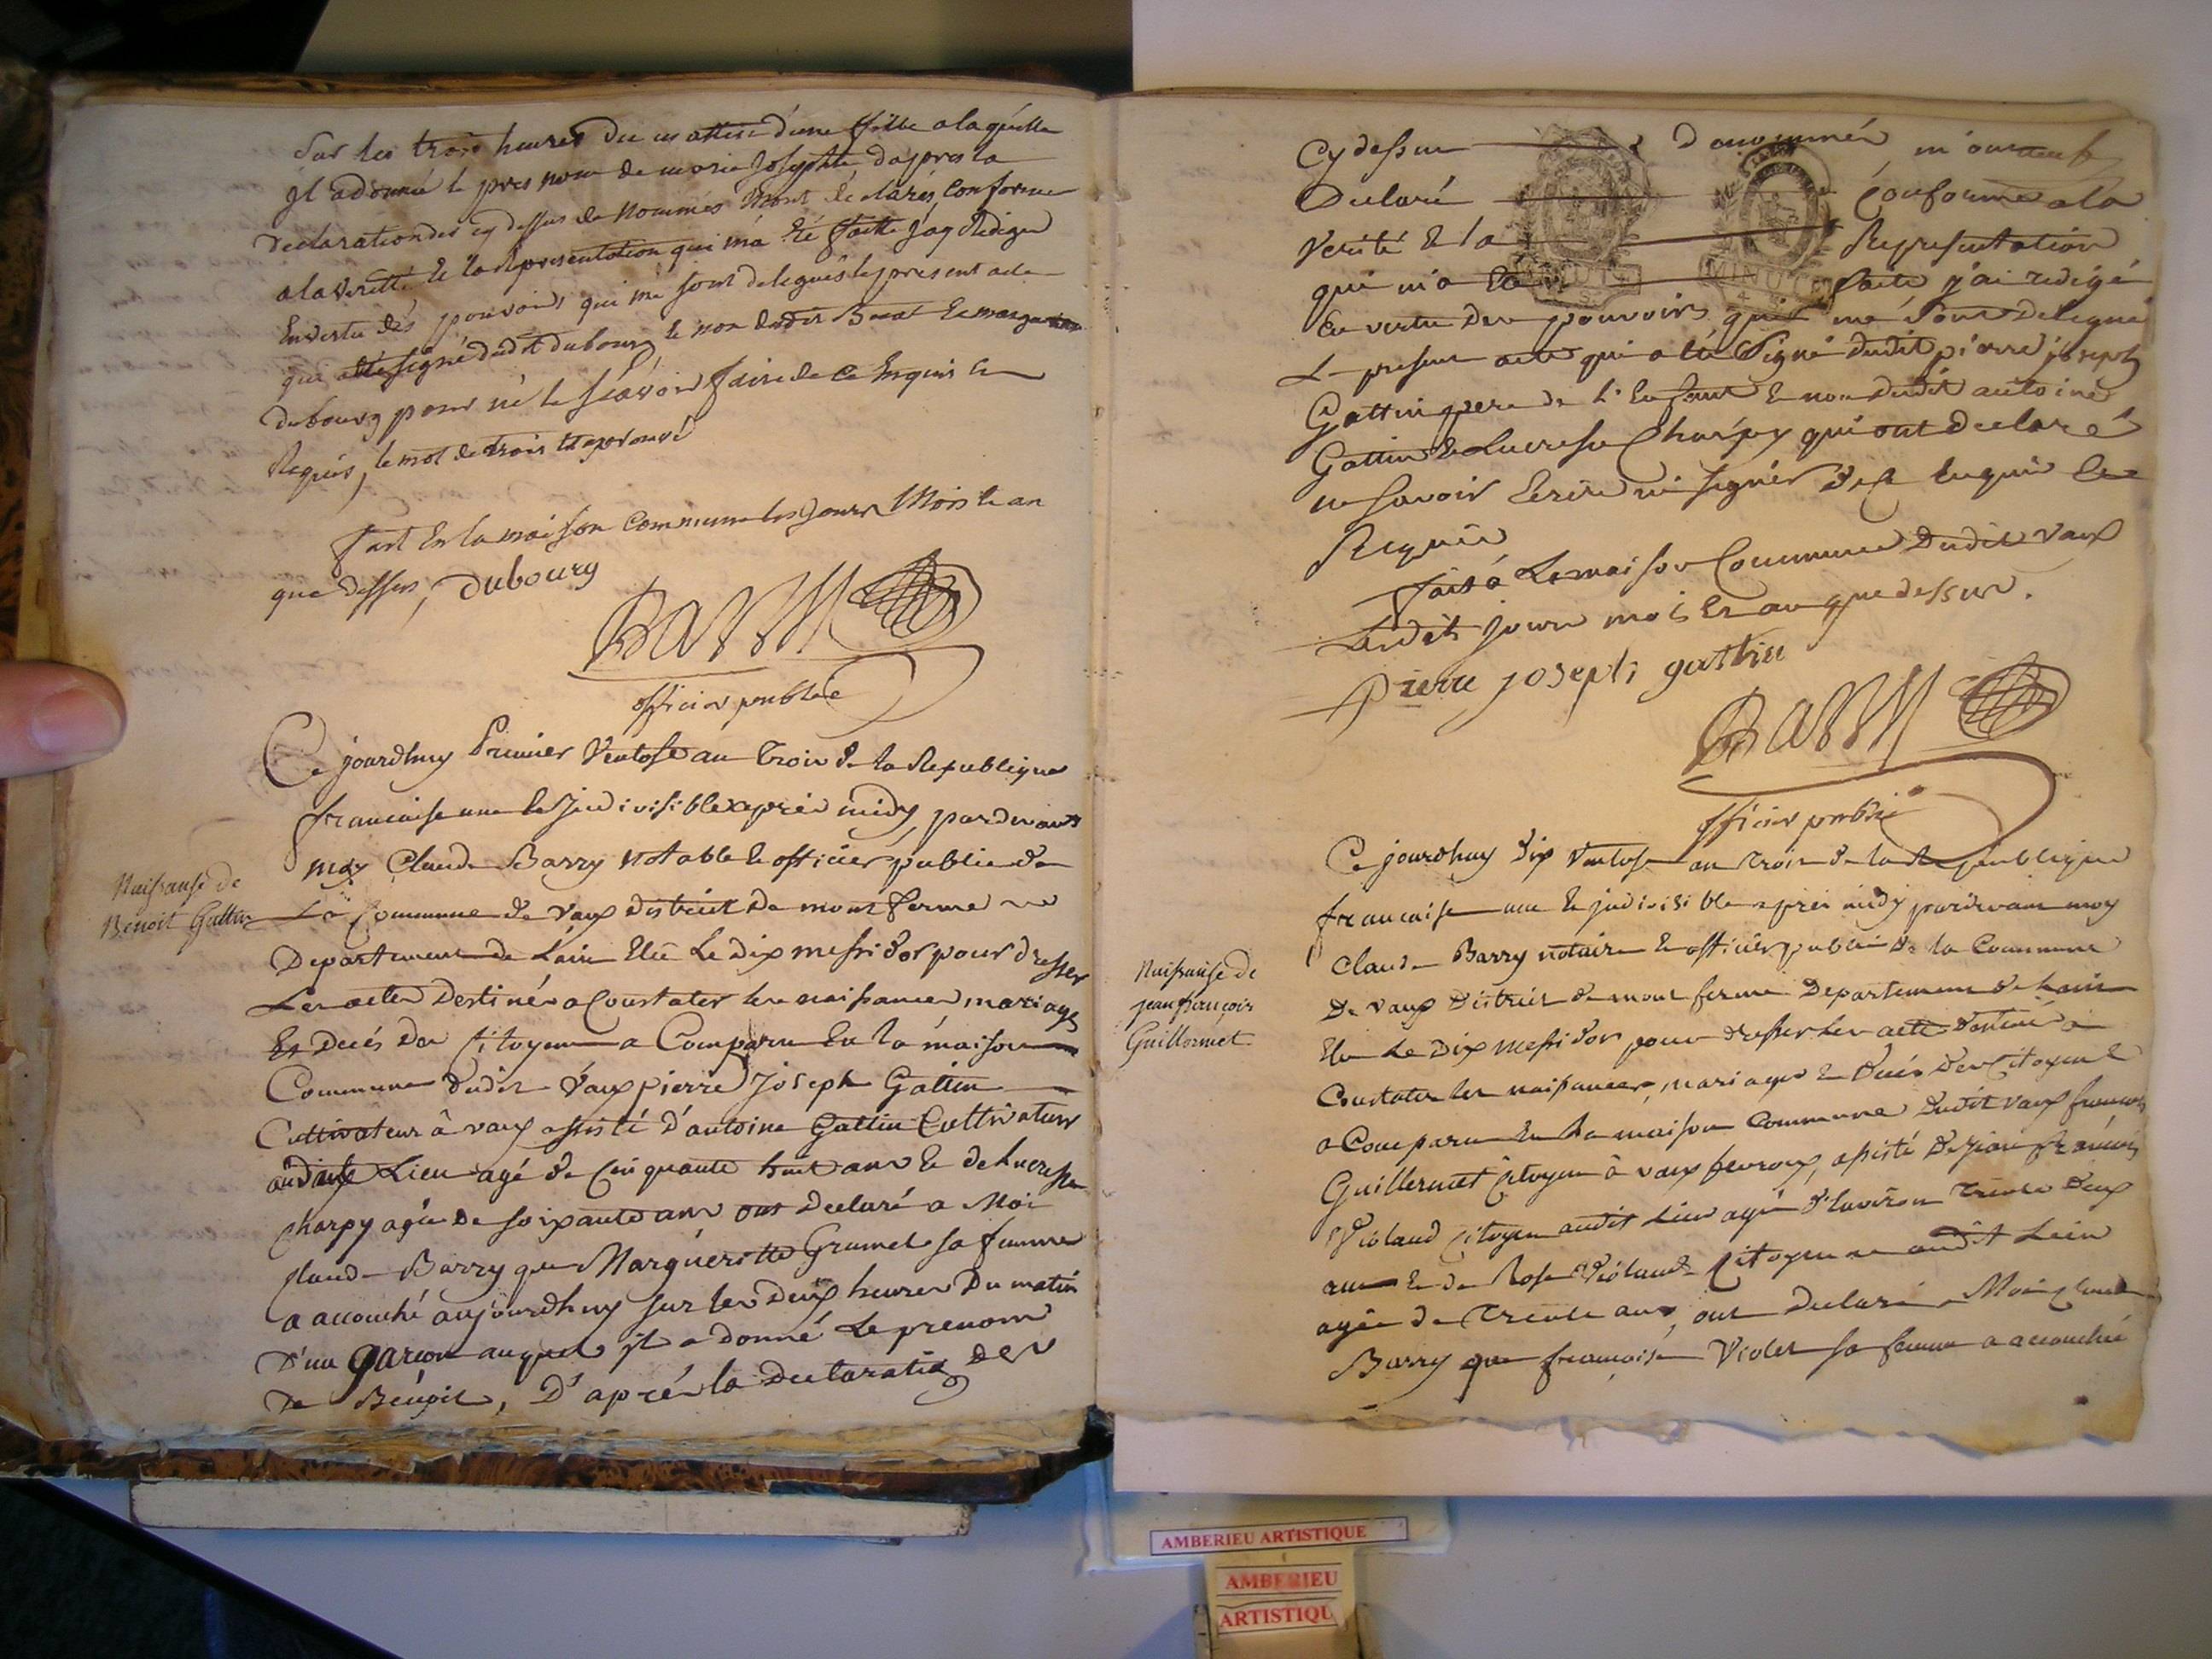 Sur les trois heures du matin d'une fille a laquelle
il a donné le pres nom de marie Josephte, dapres la
declaration des cy dessus de nommés mont declarés, conforme
a la verité et la representation qui ma été faitte jay Rediger
En vertu des pouvoirs qui me sont delegués le present acte
qui a été signé dudit dubourg le non dudit Barat et marguerite
dubourg pour ne le sçavoir faire de ce Enquis et
Requis, le mot de trois est aprouvé
fait En la maison commune les jours Mois et an
que dessus, Dubourg
Barry
officier public
Ce jourdhuy Premier Ventose an Trois de la Republique
francaise une et Indivisible après midy, pardevant
moy Claude Barry notable et officier public de
La Commune de Vaux district de mont ferme
Departement de Lain Elu Le dix messidor pour dresser
Les actes Destinés a Constater les naissances, mariages
Et Decés des Citoyens a Comparu En la maison
Commune dudit Vaux pierre Joseph Gattin
Cultivateur à vaux assisté d'antoine Gattin Cultivateur
audit Lieu agé de Cinquante huit ans et de Lucresse
Charpy agée De soixante ans ont Declaré a Moi
Claude Barry que Margueritte Grumet sa femme
a accouché aujourdhuy sur les Deux heures Du matin
D'un garcon auquel il a donné Le prenom
De Benoit, D'après la Declaration des
Naissance de
Benoit Gattin
Cy dessus Denommés m'ont
Declaré Conforme a la
Verité Et la Representation
qui m'a Eté faite j'ai redigé
En vertu des pouvoirs qui me sont Delegué
Le present acte qui a été Signé dudit pierre joseph
Gattin pere de l'Enfant Et non dudit antoine
Gattin et Lucresse Charpy qui ont declaré
ne savoir Ecrire ni signer de ce Enquis et
Requis
Fait a La maison Commune dudit Vaux
Lesdits jours mois Et an que dessus.
Pierre joseph gattin
Barry
officier public
MINUTE
MINUTE
Ce jourdhuy dix Ventose an Trois de la Republique
francaise une et indivisible après midy pardevant moy
Claude Barry notaire et officier public de la Commune
De vaux District de mont ferme Departement de Lain
Elu Le Dix Messidor pour dresser les acte destiné a
Constater les naissances, mariages et Decés des Citoyens
a Comparu En La maison Commune dudit vaux francois
Guillermet Citoyen à vaux fevroux, assisté De jean francois
Violand Citoyen audit Lieu agé d'Environ Trente Deux
ans et de Rose Violand Citoyenne audit Lieu
agée de Trente ans, ont Declaré a Moi Claude
Barry que francoise Violet sa femme a accouché
Naissance de
jean françois
Guillermet
AMBERIEU ARTISTIQUE
AMBERIEU
ARTISTIQU